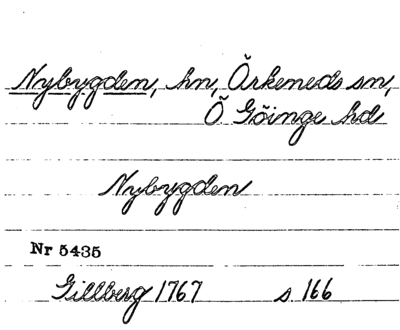 Nybygden, hn, Örkeneds sn,
Ö Göinge hd
Nybygden
Nr 5435
Gillberg 1767 s 166